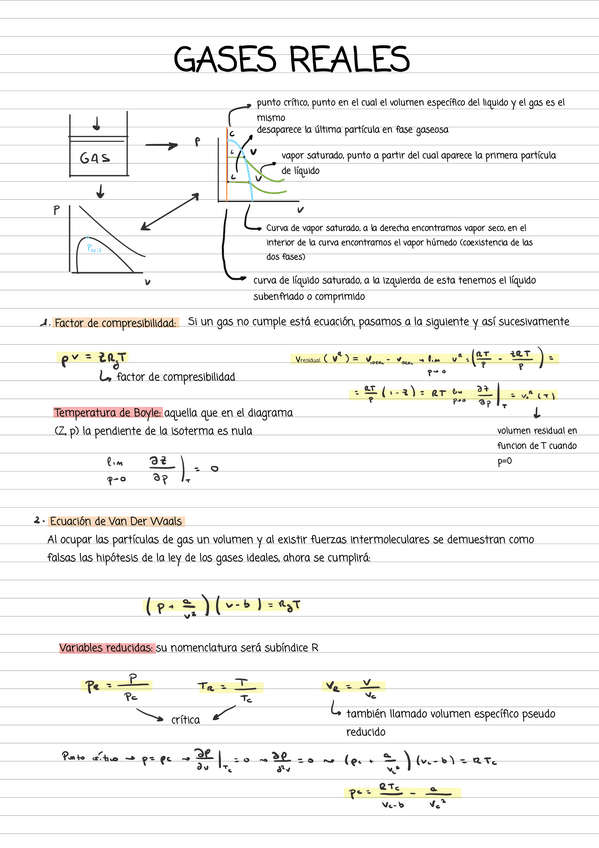 GASES REALES
punto crítico, punto en el cual el volumen específico del liquido y el gas es el
mismo
desaparece la última partícula en fase gaseosa
GAS
P
C
L
V
vapor saturado, punto a partir del cual aparece la primera partícula
de líquido
L
V
V
P
Pcrit
V
Curva de vapor saturado, a la derecha encontramos vapor seco, en el
interior de la curva encontramos el vapor húmedo (coexistencia de las
dos fases)
curva de líquido saturado, a la izquierda de esta tenemos el líquido
subenfriado o comprimido
1. Factor de compresibilidad: Si un gas no cumple está ecuación, pasamos a la siguiente y así sucesivamente
pv = ZRgT
factor de compresibilidad
= RT/p (1-Z) = RT lim p→0 ∂Z/∂p |T = v0^R (T)
Temperatura de Boyle: aquella que en el diagrama
(Z, p) la pendiente de la isoterma es nula
volumen residual en
funcion de T cuando
p=0
lim p→0 ∂Z/∂p )T = 0
2. Ecuación de Van Der Waals
Al ocupar las partículas de gas un volumen y al existir fuerzas intermoleculares se demuestran como
falsas las hipótesis de la ley de los gases ideales, ahora se cumplirá:
(p + a/v²)(v-b) = RgT
Variables reducidas: su nomenclatura será subíndice R
PR = P/Pc TR = T/Tc VR = V/Vc
crítica
también llamado volumen específico pseudo
reducido
Punto crítico → p = pc → ∂p/∂v |Tc = 0 → ∂p/∂²v = 0 → (pc + a/vc²)(vc-b) = RTc
pc = RTc/vc-b - a/vc²